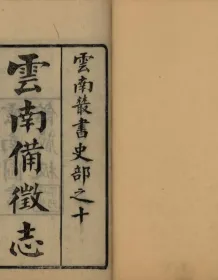 雲南叢書史部之十
雲南備徵志